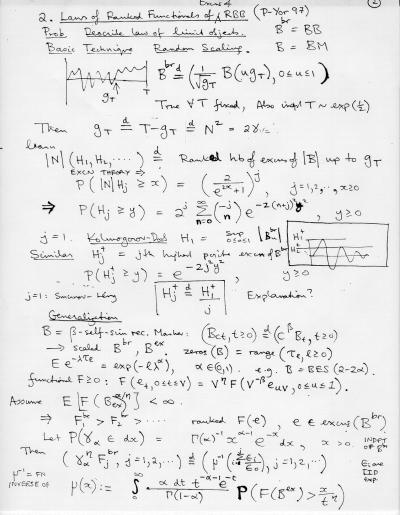 excus of
2. Laws of Ranked Functionals of RBB (P-Yor 97) (2)
Prob. Describe law of limit objects. B^br = BB
Basic Technique Random Scaling. B = BM
B^br =^d ( 1/√g_T B(u g_T), 0≤u≤1 )
g_T T
True ∀T fixed, Also indpt T ~ exp(½)
Then g_T =^d T - g_T =^d N² = 2γ
learn
|N| (H_1, H_2, ····) =^d Ranked hts of excus of |B| up to g_T
EXCN THEORY ⇒
P(|N| H_j ≥ x) = ( 2 / (e^{2x}+1) )^j , j=1,2,··, x≥0
⇒ P(H_j ≥ y) = 2^j Σ_{n=0}^∞ (-j n) e^{-2(n+j)²y²} , y≥0
j = 1. Kolmogorov-Doob H_1 = sup_{0≤u≤1} |B_u^br|
H_1^+
H_2^+
Similar H_j^+ = jth highest positive excun of B^br
P(H_j^+ ≥ y) = e^{-2j²y²} , y≥0
j=1: Smirnov- H_j^+ =^d H_1^+ / j Explanation?
Generalization
B = β-self-sim rec. Markov: (B_ct, t≥0) =^d (c^β B_t, t≥0)
→ scaled B^br, B^ex. zeros(B) = range(τ_ℓ, ℓ≥0)
E e^{-λτ_ℓ} = exp(-ℓλ^α), α∈(0,1). e.g. B = BES(2-2α).
functional F≥0: F(e_t, 0≤t≤V) = V^η F(V^{-β} e_{uV}, 0≤u≤1).
Assume E[F(B^ex)^{α/η}] < ∞.
⇒ F_1^br > F_2^br > ···· ranked F(e), e ∈ excus(B^br)
Let P(γ_α ∈ dx) = Γ(α)^{-1} x^{α-1} e^{-x} dx, x>0. INDPT OF B^br
Then (γ_α^η F_j^br, j=1,2,··) =^d ( μ^{-1}( Σ_{i=1}^j ε_i / ε_0 ), j=1,2,··) ε_i are IID exp.
μ^{-1} = FN INVERSE OF μ(x) := ∫_0^∞ α dt t^{-α-1} e^{-t} / Γ(1-α) P(F(B^ex) > x/t^η)